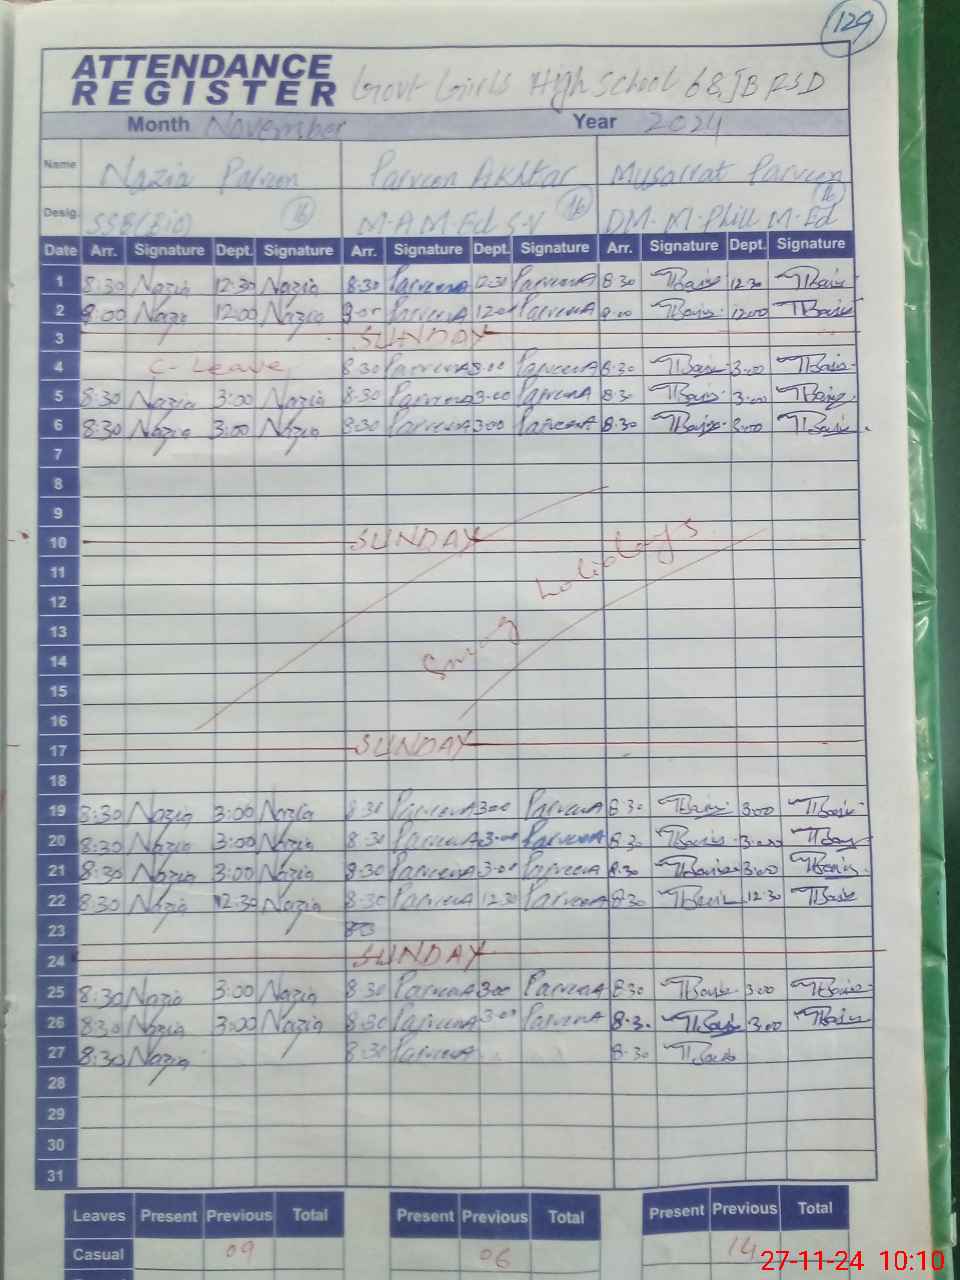 129
ATTENDANCE
REGISTER Govt Girls High School 68JB FSD
Month November Year 2024
Name Nazia Parveen Parveen Akhtar Musarrat Parveen
Desig. SSE(Bio) 16 M.A M.Ed S.V 16 DM. M.Phill M.Ed 16
Date Arr. Signature Dept. Signature Arr. Signature Dept. Signature Arr. Signature Dept. Signature
1 8:30 Nazia 12:30 Nazia 8:30 ParveenA 12:30 ParveenA 8:30 12:30
2 9:00 Nazia 12:00 Nazia 9:00 ParveenA 12:00 ParveenA 9:00 12:00
3 SUNDAY
4 C-Leave 8:30 ParveenA 3:00 ParveenA 8:30 3:00
5 8:30 Nazia 3:00 Nazia 8:30 ParveenA 3:00 ParveenA 8:30 3:00
6 8:30 Nazia 3:00 Nazia 8:30 ParveenA 3:00 ParveenA 8:30 3:00
7
8
9
10 SUNDAY
11
12
13
14
15
16
Smog Holidays
17 SUNDAY
18
19 8:30 Nazia 3:00 Nazia 8:30 ParveenA 3:00 ParveenA 8:30 3:00
20 8:30 Nazia 3:00 Nazia 8:30 ParveenA 3:00 ParveenA 8:30 3:00
21 8:30 Nazia 3:00 Nazia 8:30 ParveenA 3:00 ParveenA 8:30 3:00
22 8:30 Nazia 12:30 Nazia 8:30 ParveenA 12:30 ParveenA 8:30 12:30
23
24 SUNDAY
25 8:30 Nazia 3:00 Nazia 8:30 ParveenA 3:00 ParveenA 8:30 3:00
26 8:30 Nazia 3:00 Nazia 8:30 ParveenA 3:00 ParveenA 8:30 3:00
27 8:30 Nazia 8:30 ParveenA 8:30
28
29
30
31
Leaves Present Previous Total Present Previous Total Present Previous Total
Casual 09 06 14
27-11-24 10:10